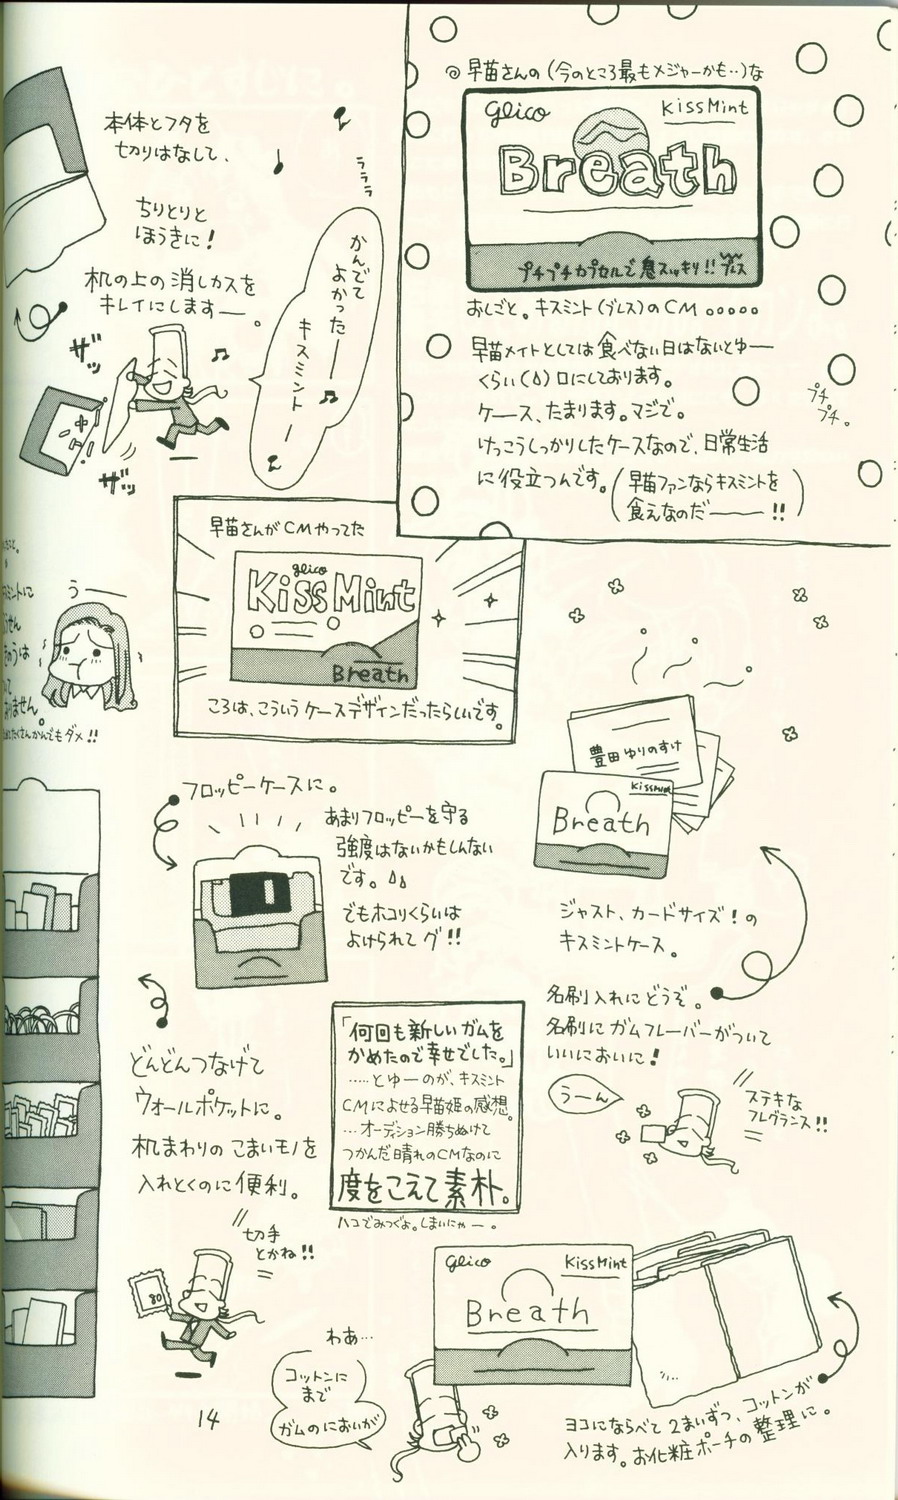 ◎早苗さんの（今のところ最もメジャーかも‥）な
glico
KissMint
Breath
プチプチカプセルで息スッキリ!! ブレス
おしごと。キスミント（ブレス）のCM 。。。。。
早苗メイトとしては食べない日はないとゆー
くらい（
）口にしております。
ケース、たまります。マジで。
けっこうしっかりしたケースなので、日常生活
に役立つんです。
（早苗ファンならキスミントを
食えなのだ――!!）
プチ
プチ。
本体とフタを
切りはなして、
ちりとりと
ほうきに！
机の上の消しカスを
キレイにします―。
ザッ
ザッ
ラララ
かんでて
よかった――♫
キスミント―♪
早苗さんがCMやってた
glico
Kiss Mint
Breath
ころは、こういうケースデザインだったらしいです。
うー
ミントに
せん
きのうは
って
ありません。
たくさんかんでもダメ!!
フロッピーケースに。
あまりフロッピーを守る
強度はないかもしんない
です。
でもホコリくらいは
よけられてグ!!
豊田ゆりのすけ
KissMint
Breath
ジャスト、カードサイズ！の
キスミントケース。
名刺入れにどうぞ。
名刺にガムフレーバーがついて
いいにおいに！
うーん
ステキな
フレグランス!!
どんどんつなげて
ウォールポケットに。
机まわりのこまいモノを
入れとくのに便利。
切手
とかね!!
80
「何回も新しいガムを
かめたので幸せでした。」
‥‥とゆーのが、キスミント
CMによせる早苗姫の感想。
…オーディション勝ちぬけて
つかんだ晴れのCMなのに
度をこえて素朴。
ハコでみつぐよ。しまいにゃー。
glico
KissMint
Breath
わあ…
コットンに
まで
ガムのにおいが
ヨコにならべて2まいずつ、コットンが
入ります。お化粧ポーチの整理に。
14